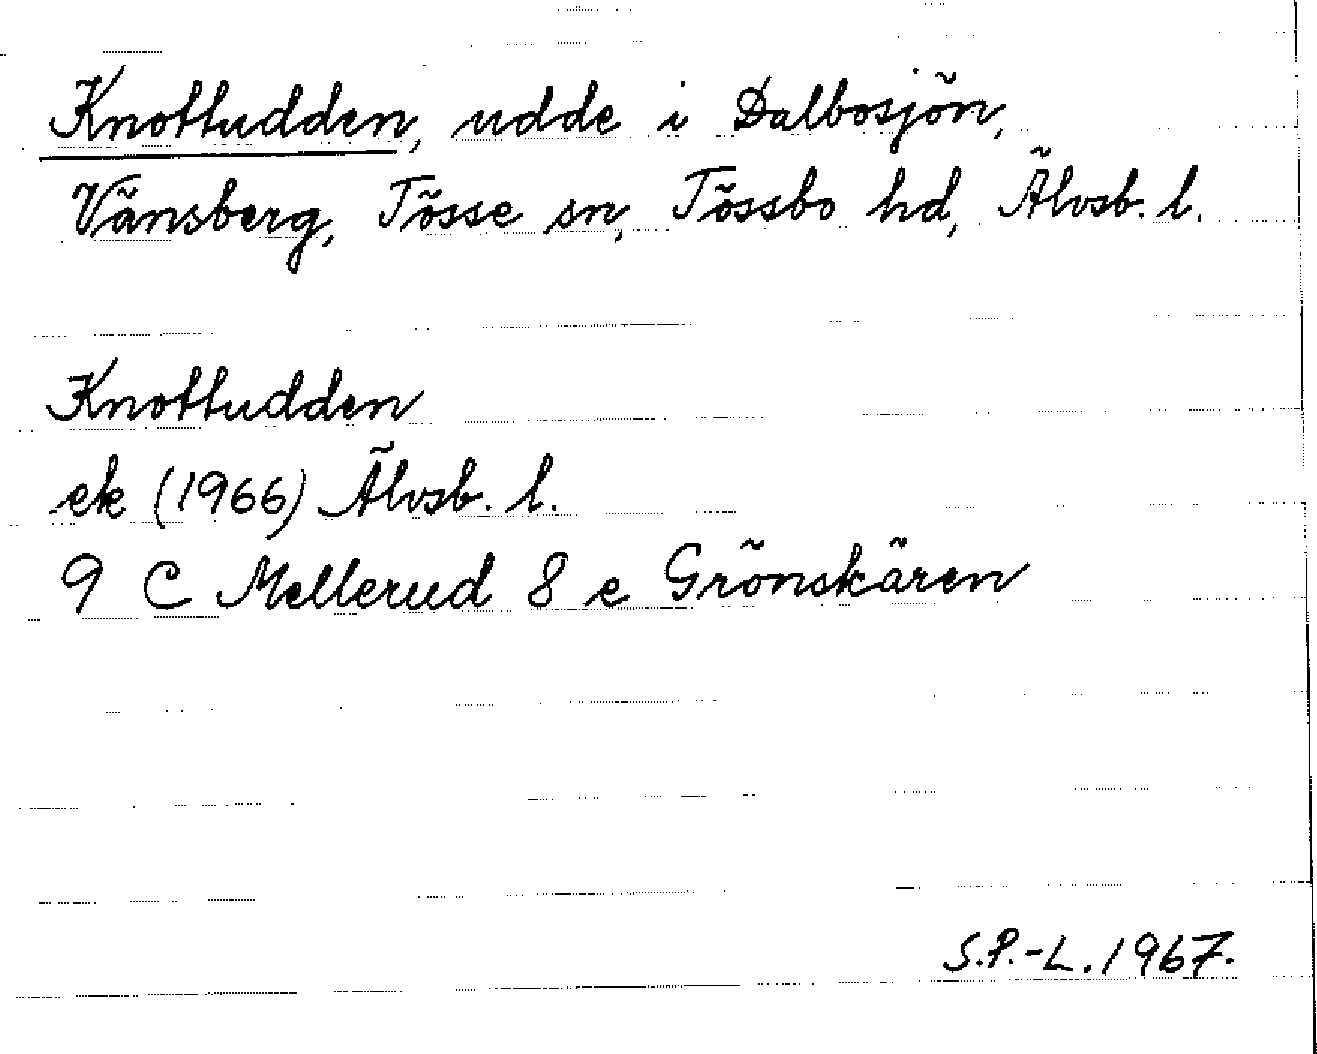 Knottudden, udde i Dalbosjön,
Vänsberg, Tösse sn, Tössbo hd, Älvsb. l.
Knottudden
ek (1966) Älvsb. l.
9 C Mellerud 8 e Grönskären
S.P.-L. 1967.